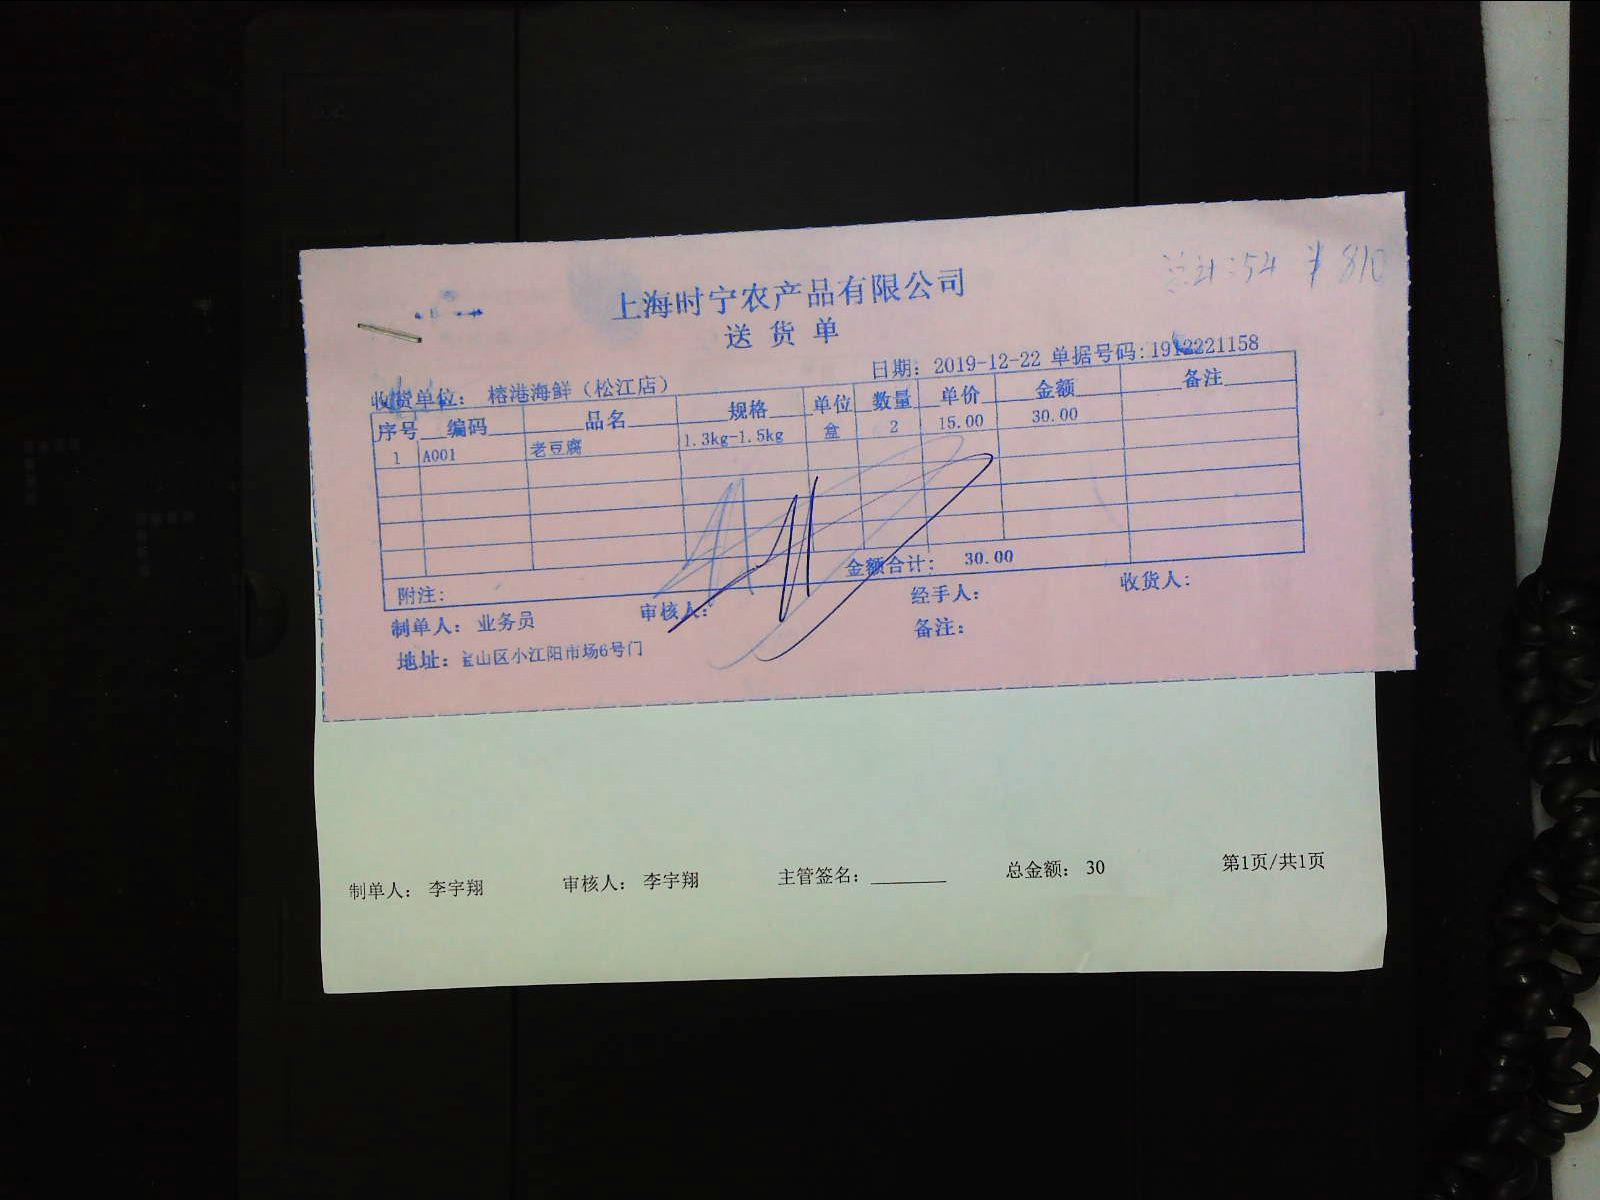 总计:54 ¥ 810
上海时宁农产品有限公司
送货单
日期: 2019-12-22 单据号码:1912221158
收货单位: 榕港海鲜（松江店）
序号 编码 品名 规格 单位 数量 单价 金额 备注
1 A001 老豆腐 1.3kg-1.5kg 盒 2 15.00 30.00
附注: 金额合计: 30.00
制单人: 业务员 审核人: 经手人: 收货人:
地址: 宝山区小江阳市场6号门 备注:
制单人: 李宇翔 审核人: 李宇翔 主管签名: 总金额: 30 第1页/共1页